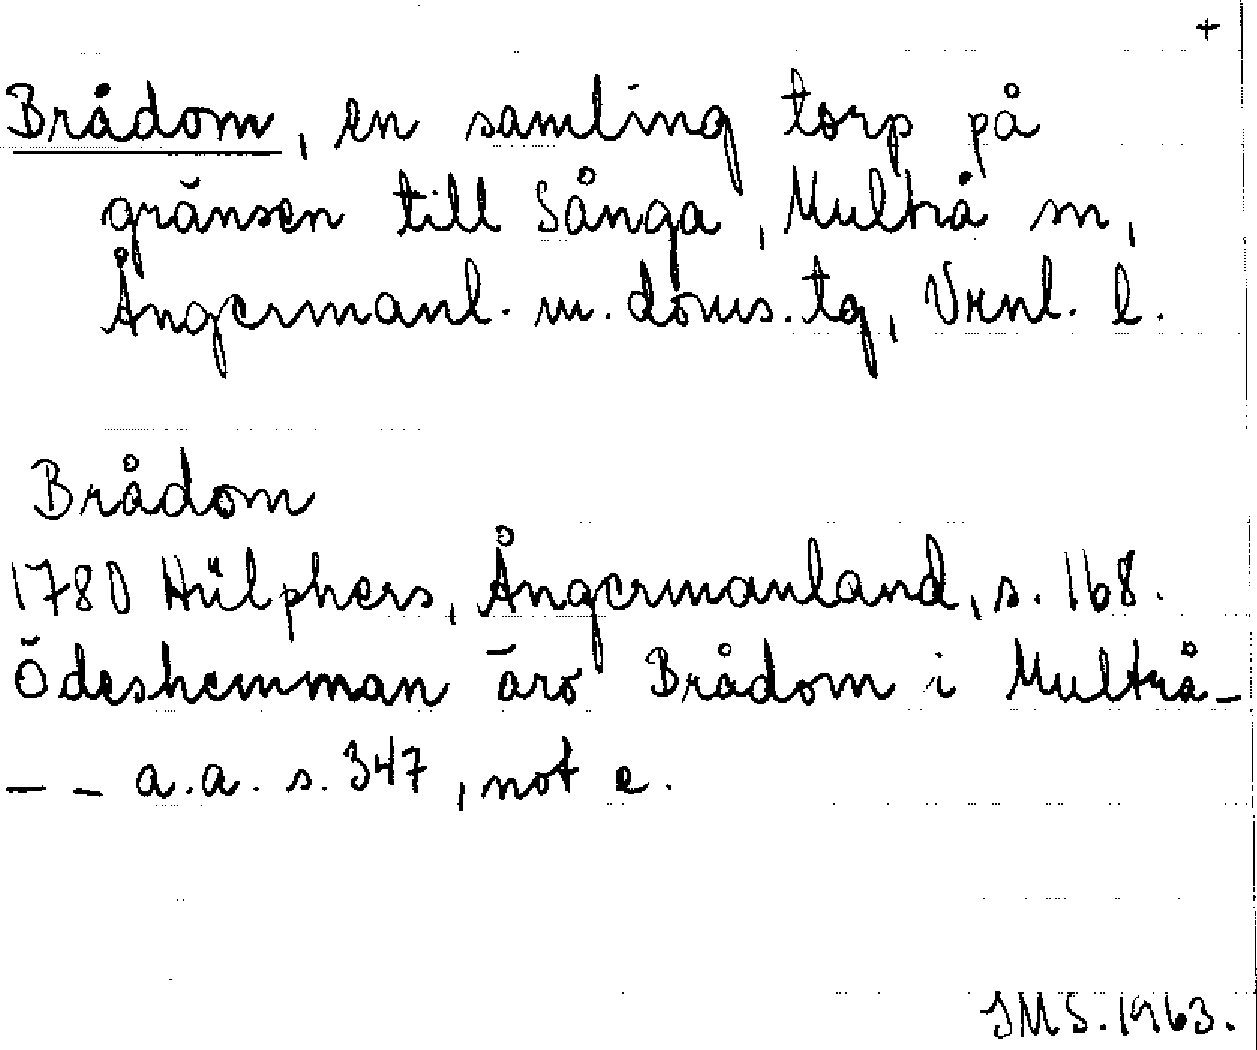 +
Brådom, en samling torp på
gränsen till Sånga, Multrå sn,
Ångermanl. m. doms. tg, Vrnl. l.
Brådom
1780 Hülphers, Ångermanland, s. 168.
Ödeshemman äro Brådom i Multrå-
-- a.a. s. 347, not e.
JMS. 1963.